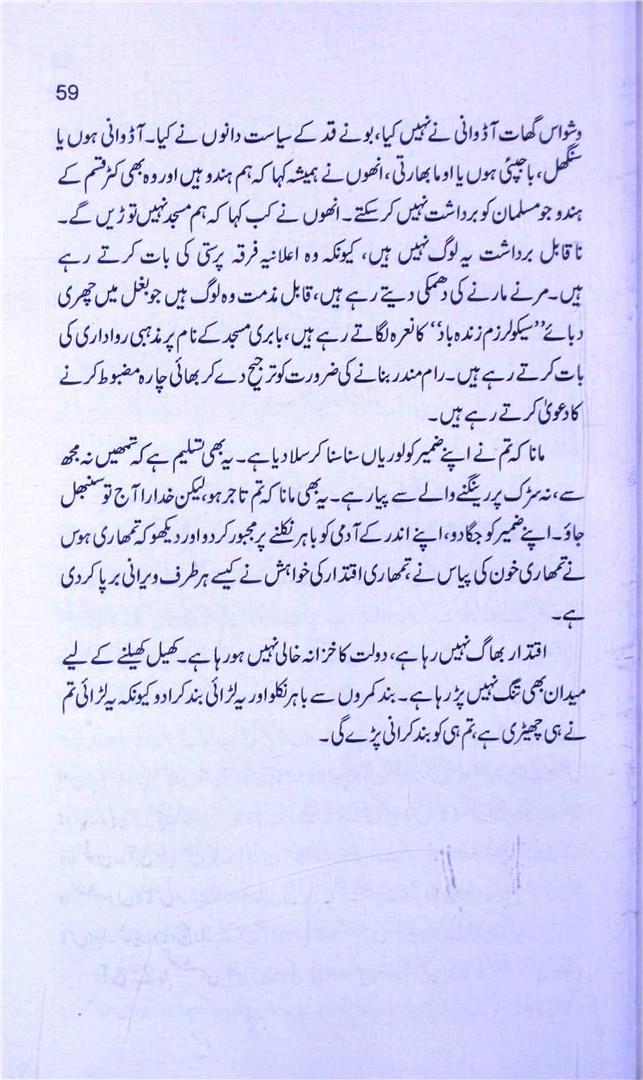 59
وشواس گھات آڈوانی نے نہیں کیا، بونے قد کے سیاست دانوں نے کیا۔ آڈوانی ہوں یا
سنگھل، باجپئی ہوں یا اوما بھارتی، انھوں نے ہمیشہ کہا کہ ہم ہندو ہیں اور وہ بھی کٹر قسم کے
ہندو جو مسلمان کو برداشت نہیں کر سکتے۔ انھوں نے کب کہا کہ ہم مسجد نہیں توڑیں گے۔
ناقابل برداشت یہ لوگ نہیں ہیں، کیونکہ وہ اعلانیہ فرقہ پرستی کی بات کرتے رہے
ہیں۔ مرنے مارنے کی دھمکی دیتے رہے ہیں، قابل مذمت وہ لوگ ہیں جو بغل میں چھری
دبائے ’’سیکولرزم زندہ باد‘‘ کا نعرہ لگاتے رہے ہیں، بابری مسجد کے نام پر مذہبی رواداری کی
بات کرتے رہے ہیں۔ رام مندر بنانے کی ضرورت کو ترجیح دے کر بھائی چارہ مضبوط کرنے
کا دعویٰ کرتے رہے ہیں۔
مانا کہ تم نے اپنے ضمیر کو لوریاں سنا سنا کر سلا دیا ہے۔ یہ بھی تسلیم ہے کہ تمھیں نہ مجھ
سے، نہ سڑک پر رینگنے والے سے پیار ہے۔ یہ بھی مانا کہ تم تاجر ہو، لیکن خدارا آج تو سنبھل
جاؤ۔ اپنے ضمیر کو جگا دو، اپنے اندر کے آدمی کو باہر نکلنے پر مجبور کر دو اور دیکھو کہ تمھاری ہوس
نے تمھاری خون کی پیاس نے، تمھاری اقتدار کی خواہش نے کیسے ہر طرف ویرانی برپا کر دی
ہے۔
اقتدار بھاگ نہیں رہا ہے، دولت کا خزانہ خالی نہیں ہو رہا ہے۔ کھیل کھیلنے کے لیے
میدان بھی تنگ نہیں پڑ رہا ہے۔ بند کمروں سے باہر نکلو اور یہ لڑائی بند کرا دو کیونکہ یہ لڑائی تم
نے ہی چھیڑی ہے، تم ہی کو بند کرانی پڑے گی۔